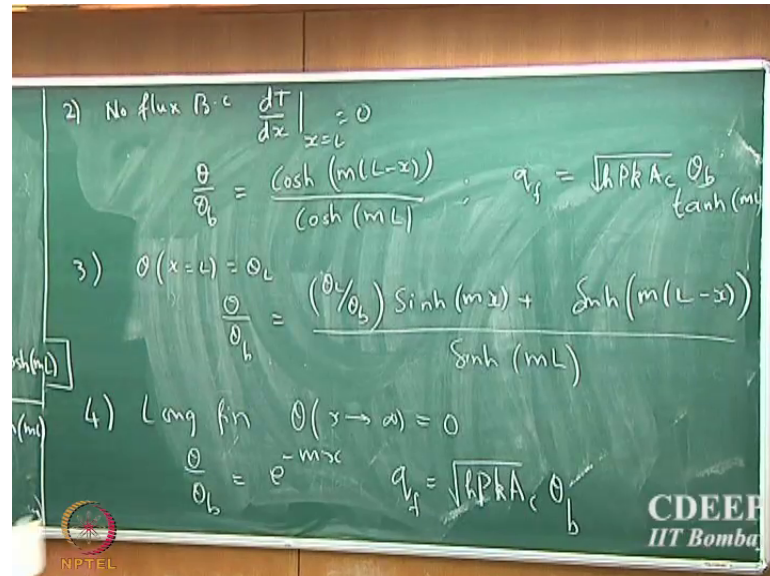 2) No flux B.C dT/dx |x=L = 0
θ/θb = Cosh (m(L-x)) / Cosh (mL) ; qf = √hPkAc θb tanh(mL
3) θ(x=L) = θL
θ/θb = (θL/θb) Sinh (mx) + Sinh (m(L-x)) / Sinh (mL)
osh(mL)
h(mL)
4) Long fin θ(x→∞) = 0
θ/θb = e^-mx qf = √hPkAc θb
CDEEP
IIT Bombay
NPTEL